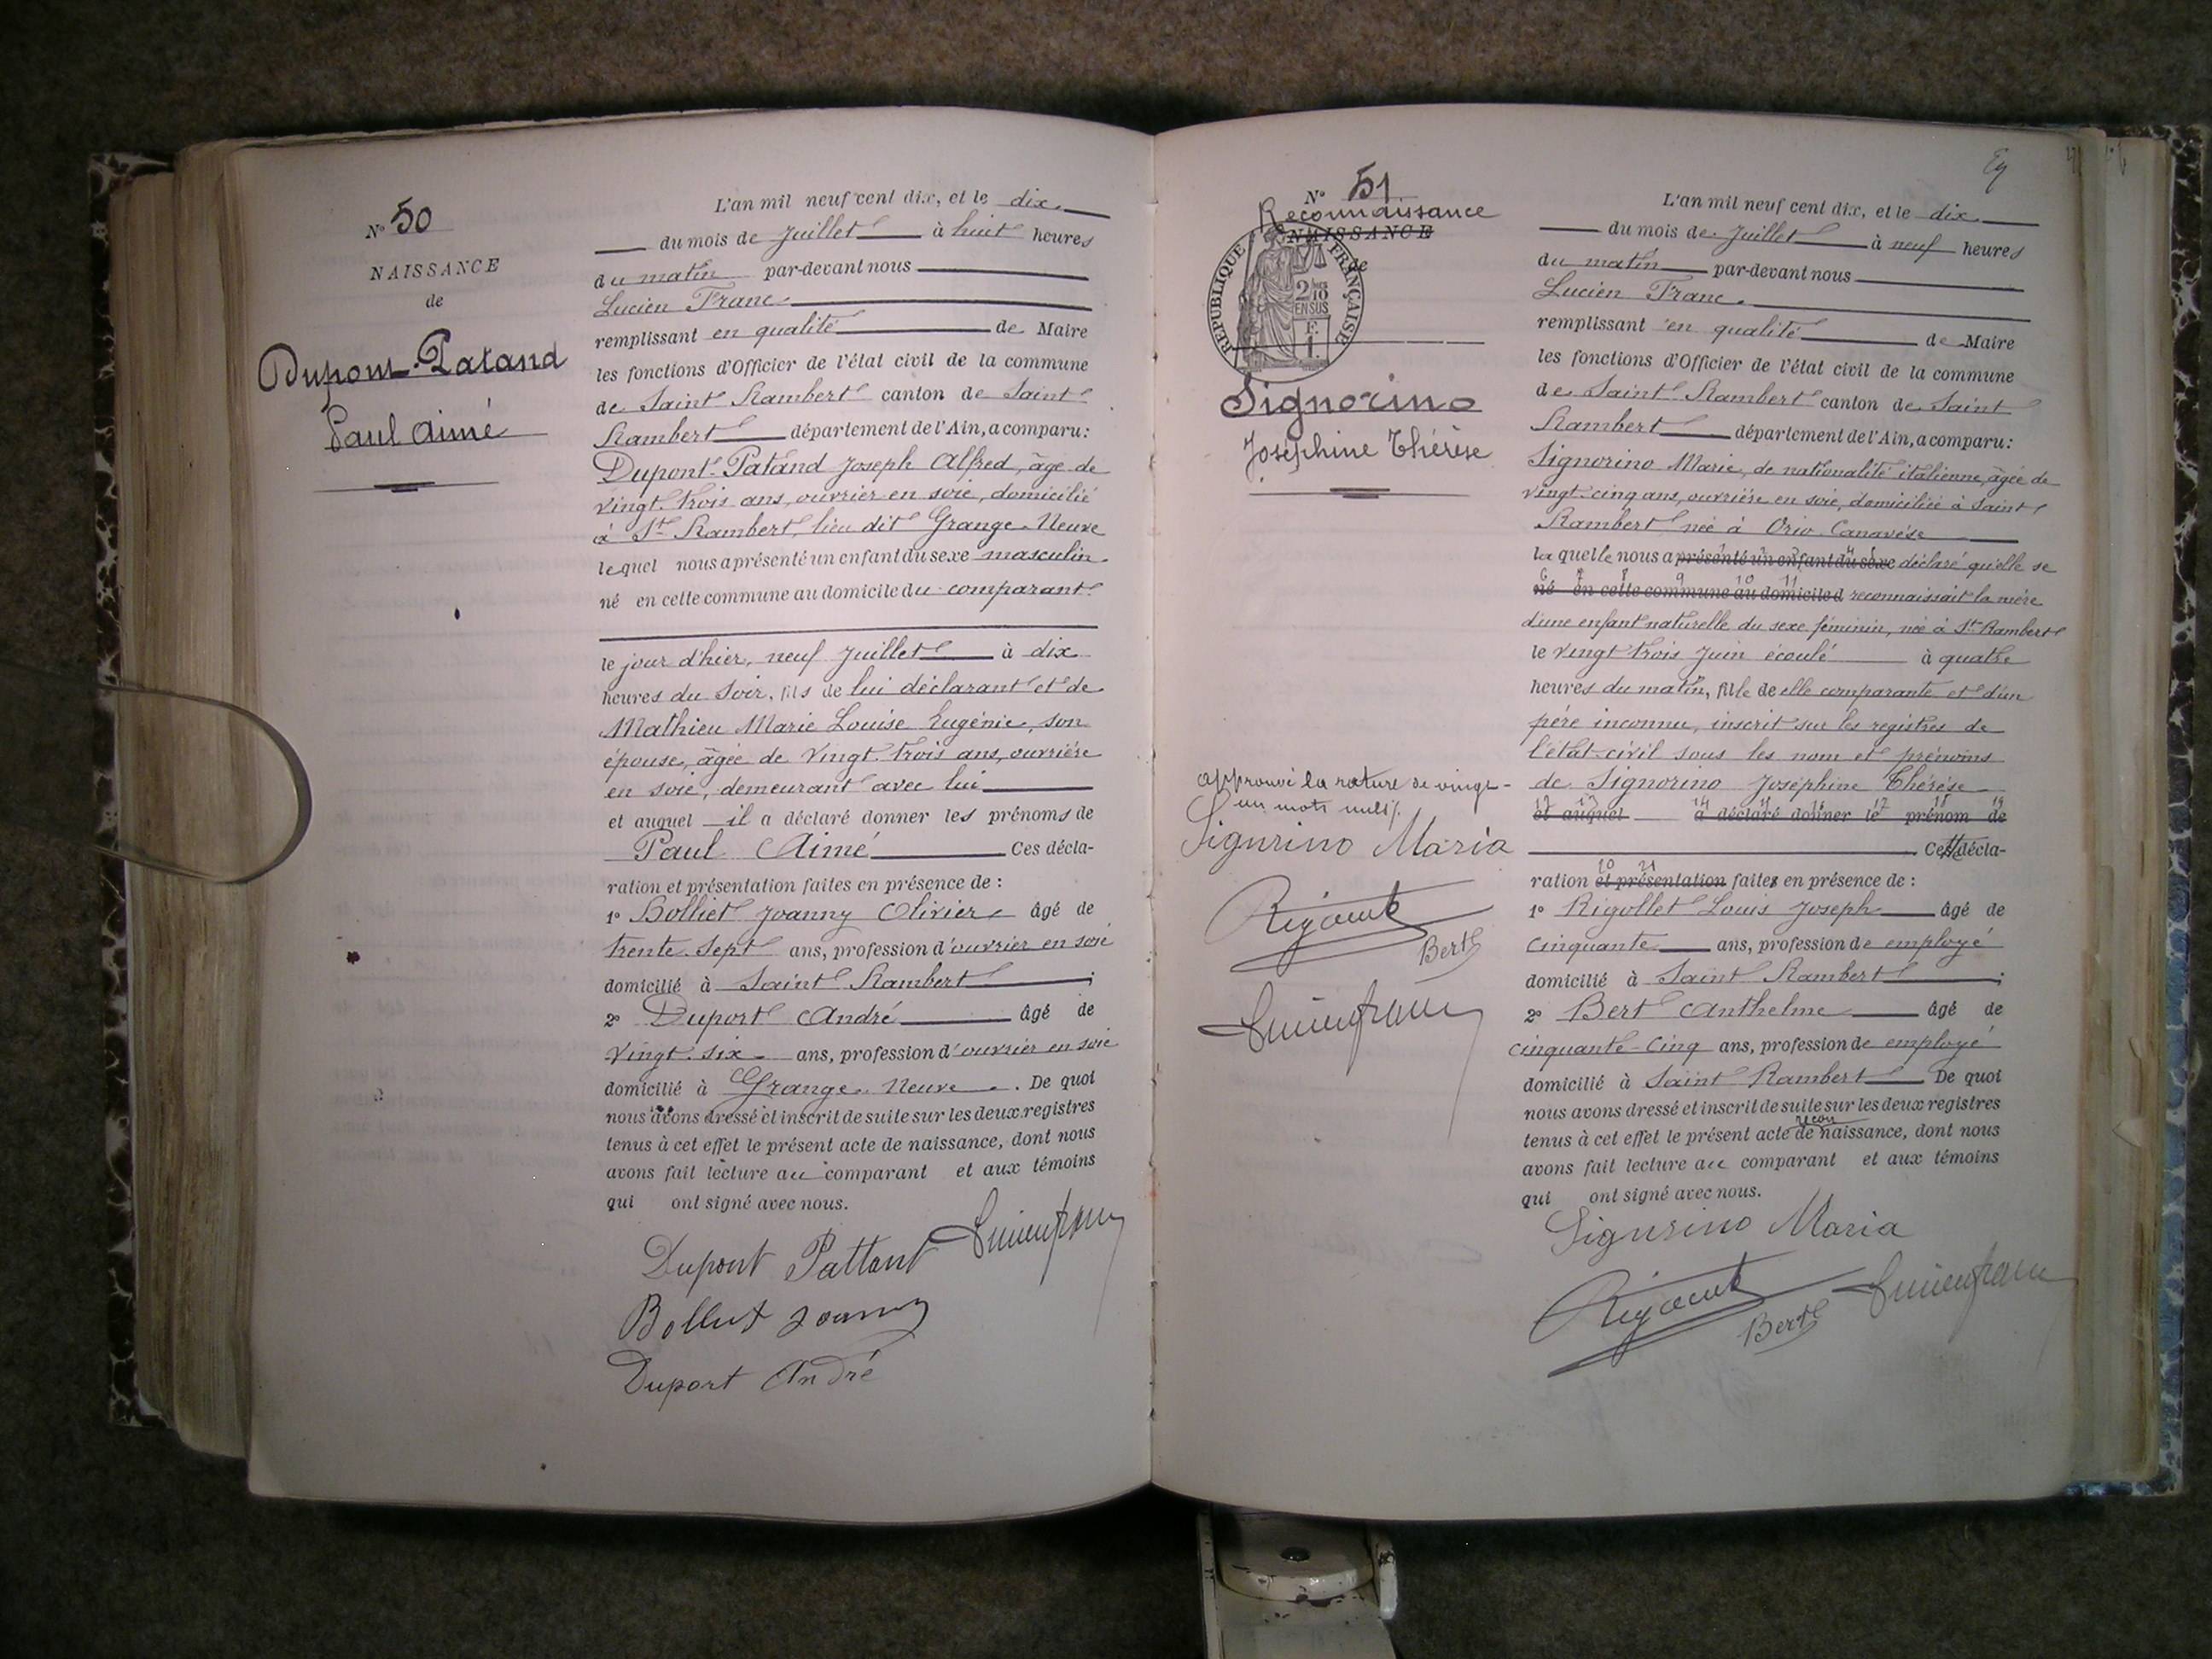 N° 50
NAISSANCE
de
Dupont-Patand
Paul Aimé
L'an mil neuf cent dix, et le dix
du mois de Juillet à huit heures
du matin par-devant nous
Lucien Franc
remplissant en qualité de Maire
les fonctions d'Officier de l'état civil de la commune
de Saint Rambert canton de Saint
Rambert département de l'Ain, a comparu:
Dupont-Patand Joseph Alfred, âgé de
vingt-trois ans, ouvrier en soie, domicilié
à St Rambert, lieu dit Grange-Neuve
lequel nous a présenté un enfant du sexe masculin
né en cette commune au domicile du comparant
le jour d'hier, neuf Juillet à dix
heures du soir, fils de lui déclarant et de
Mathieu Marie Louise Eugénie, son
épouse, âgée de vingt-trois ans, ouvrière
en soie, demeurant avec lui
et auquel il a déclaré donner les prénoms de
Paul Aimé Ces décla-
ration et présentation faites en présence de :
1° Bolliet Joanny Olivier âgé de
trente-sept ans, profession d'ouvrier en soie
domicilié à Saint Rambert ;
2° Duport André âgé de
vingt-six ans, profession d'ouvrier en soie
domicilié à Grange-Neuve. De quoi
nous avons dressé et inscrit de suite sur les deux registres
tenus à cet effet le présent acte de naissance, dont nous
avons fait lecture au comparant et aux témoins
qui ont signé avec nous.
Dupont Pattant Lucien Franc
Bolliet Joanny
Duport André
N° 51
Reconnaissance
NAISSANCE
de
REPUBLIQUE FRANÇAISE
2/10 EN SUS
F. 1.
Signorino
Joséphine Thérèse
L'an mil neuf cent dix, et le dix
du mois de Juillet à neuf heures
du matin par-devant nous
Lucien Franc
remplissant en qualité de Maire
les fonctions d'Officier de l'état civil de la commune
de Saint-Rambert canton de Saint
Rambert département de l'Ain, a comparu:
Signorino Marie, de nationalité italienne, âgée de
vingt-cinq ans, ouvrière en soie, domiciliée à Saint
Rambert née à Orio Canavèse
laquelle nous a présenté un enfant du sexe déclaré qu'elle se
6 7 8 9 10 11
né en cette commune au domicile d reconnaissait la mère
d'une enfant naturelle du sexe féminin, née à St Rambert
le vingt trois Juin écoulé à quatre
heures du matin, fille de elle comparante et d'un
père inconnu, inscrit sur les registres de
l'état-civil sous les nom et prénoms
de Signorino Joséphine Thérèse
12 13 14 15 16 17 18 19
et auquel a déclaré donner le prénom de
Cette décla-
20 21
ration et présentation faites en présence de :
1° Rigollet Louis Joseph âgé de
cinquante ans, profession de employé
domicilié à Saint Rambert ;
2° Bert Anthelme âgé de
cinquante-cinq ans, profession de employé
domicilié à Saint Rambert De quoi
nous avons dressé et inscrit de suite sur les deux registres
recon
tenus à cet effet le présent acte de naissance, dont nous
avons fait lecture au comparant et aux témoins
qui ont signé avec nous.
Signurino Maria
Bert Lucien Franc
approuvé la rature de vingt-
un mots nuls
Signurino Maria
Bert
Lucien Franc